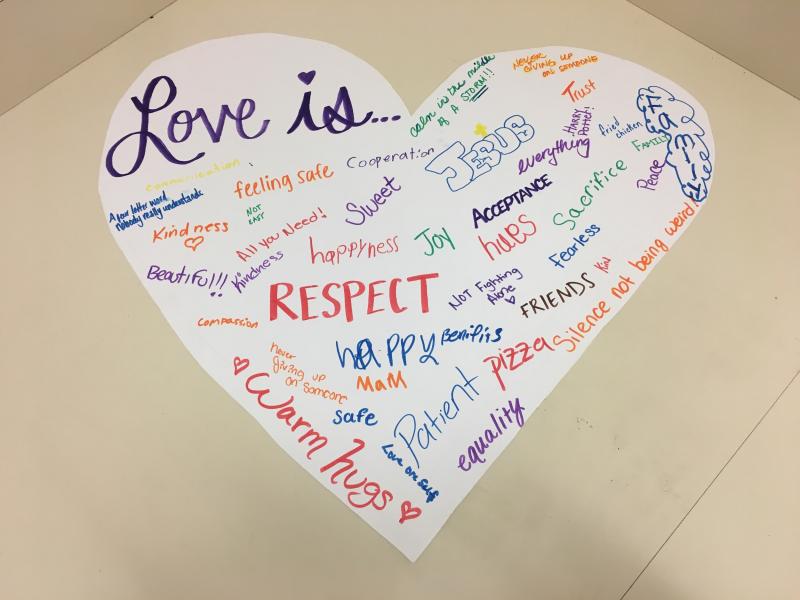 Love is...
calm in the middle
of A STORM!!
NEVER
GIVING UP
ON SOMEONE
Trust
HARRY
Potter!
fried
chicken
FAMILY
Peace
JESUS
everything
Cooperation
communication
feeling safe
A four letter word
nobody really understands
NOT
EASY
Sweet
ACCEPTANCE
Sacrifice
Kindness
All you Need!
happyness
Joy
hugs
Fearless
Beautiful!!!
Kindness
RESPECT
NOT Fighting
Alone
FRIENDS
Silence not being weird!
compassion
happy
Benifits
pizza
never
giving up
on someone
MaM
safe
Patient
equality
Warm hugs
Love one self